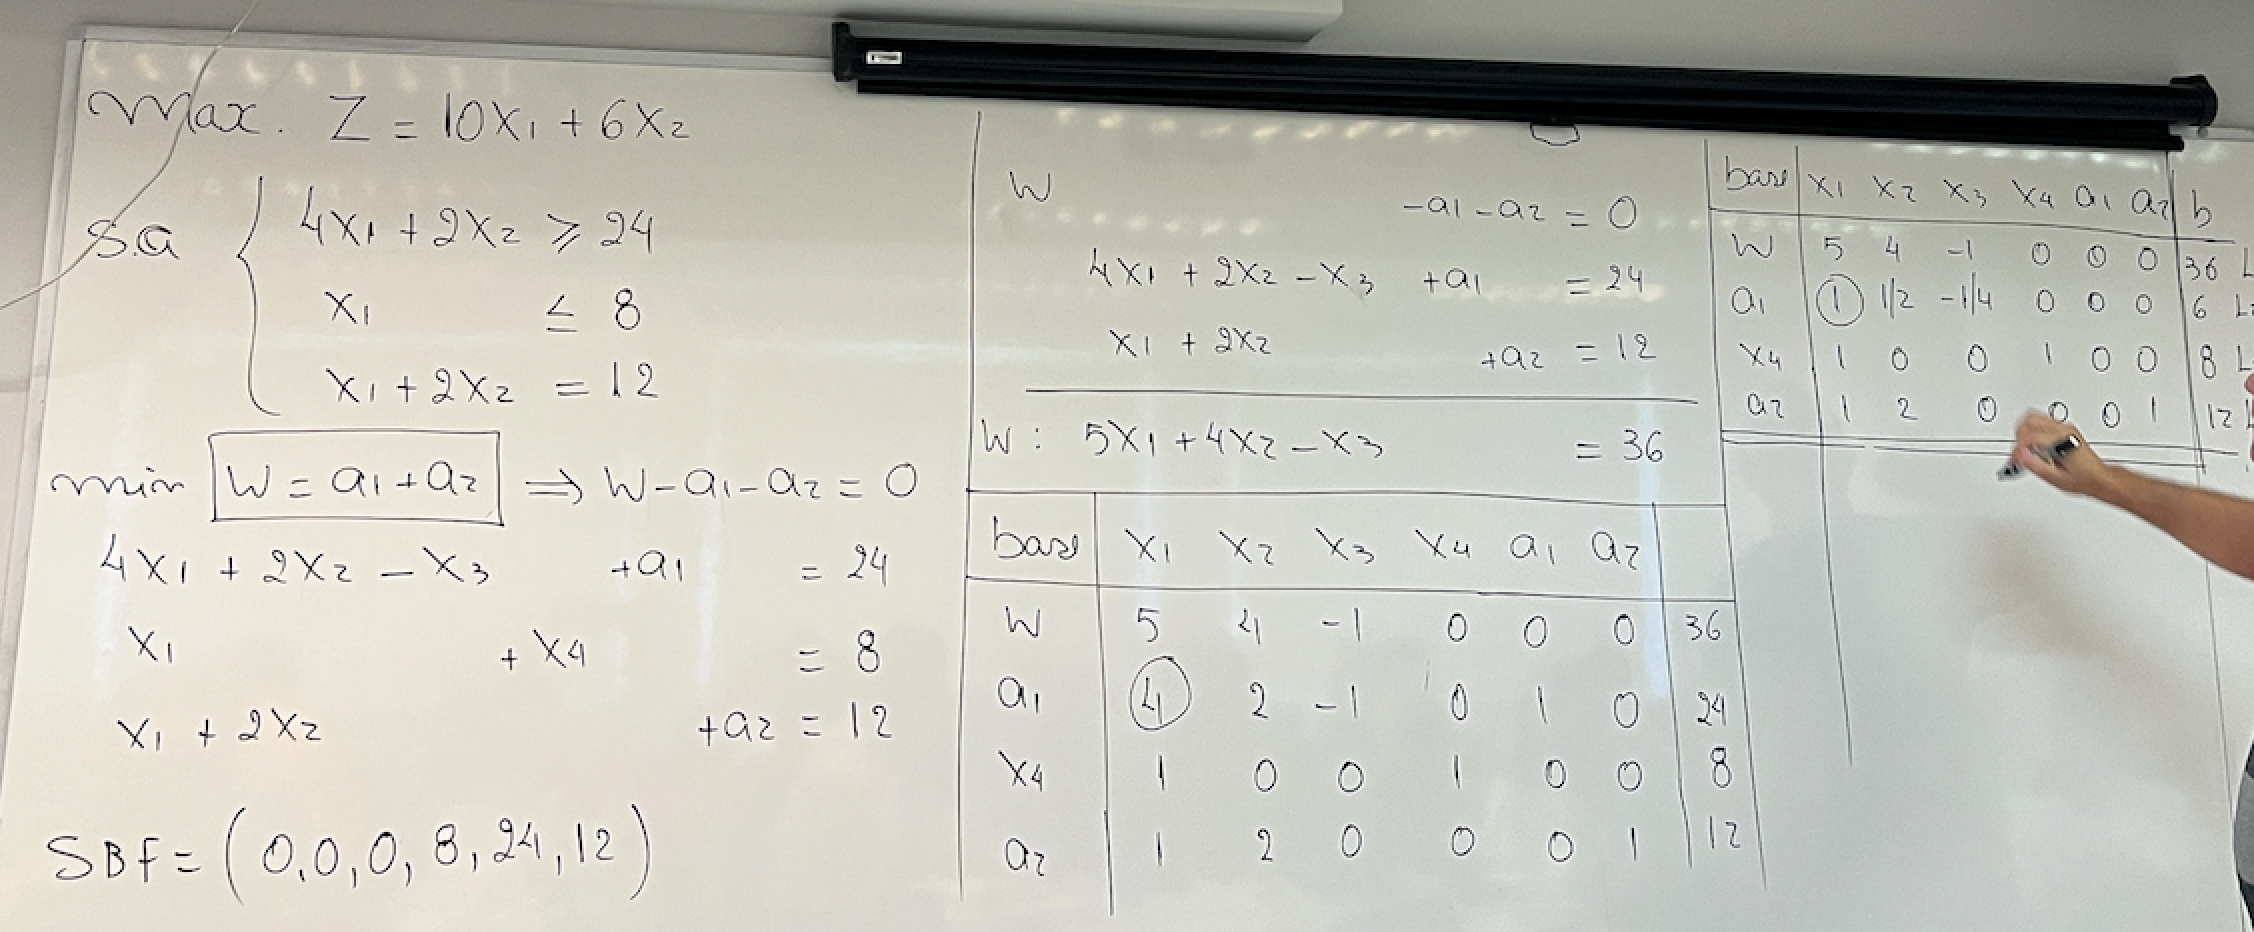 Max. Z = 10x₁ + 6x₂
s.a { 4x₁ + 2x₂ ⩾ 24
x₁ ≤ 8
x₁ + 2x₂ = 12
min W = a₁ + a₂ ⇒ W - a₁ - a₂ = 0
4x₁ + 2x₂ - x₃ + a₁ = 24
x₁ + x₄ = 8
x₁ + 2x₂ + a₂ = 12
SBF = (0,0,0,8,24,12)
W - a₁ - a₂ = 0
4x₁ + 2x₂ - x₃ + a₁ = 24
x₁ + 2x₂ + a₂ = 12
W: 5x₁ + 4x₂ - x₃ = 36
base x₁ x₂ x₃ x₄ a₁ a₂
W 5 4 -1 0 0 0 36
a₁ 4 2 -1 0 1 0 24
x₄ 1 0 0 1 0 0 8
a₂ 1 2 0 0 0 1 12
base x₁ x₂ x₃ x₄ a₁ a₂ b
W 5 4 -1 0 0 0 36
a₁ 1 1/2 -1/4 0 0 0 6
x₄ 1 0 0 1 0 0 8
a₂ 1 2 0 0 0 1 12